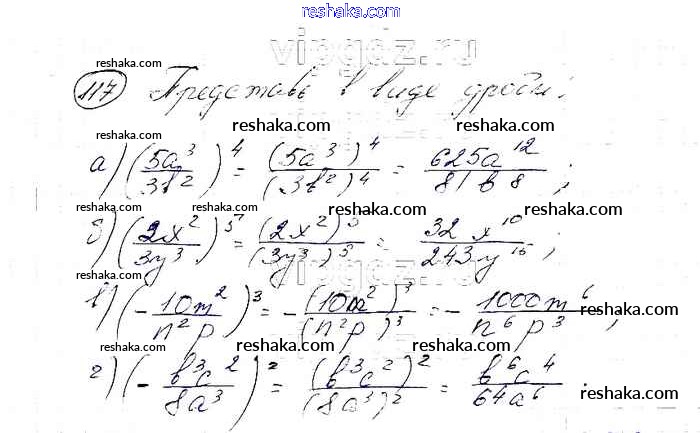 reshaka.com
vipgdz.ru
117 Представь в виде дроби:
reshaka.com reshaka.com reshaka.com
а) (5a³/3b²)⁴ = (5a³)⁴/(3b²)⁴ = 625a¹²/81b⁸;
reshaka.com reshaka.com reshaka.com
б) (2x²/3y³)⁵ = (2x²)⁵/(3y³)⁵ = 32x¹⁰/243y¹⁵;
reshaka.com reshaka.com reshaka.com
в) (-10m²/n²p)³ = -(10m²)³/(n²p)³ = -1000m⁶/n⁶p³;
reshaka.com reshaka.com reshaka.com
г) (-b³c²/8a³)² = (b³c²)²/(8a³)² = b⁶c⁴/64a⁶.
reshaka.com reshaka.com reshaka.com
reshaka.com